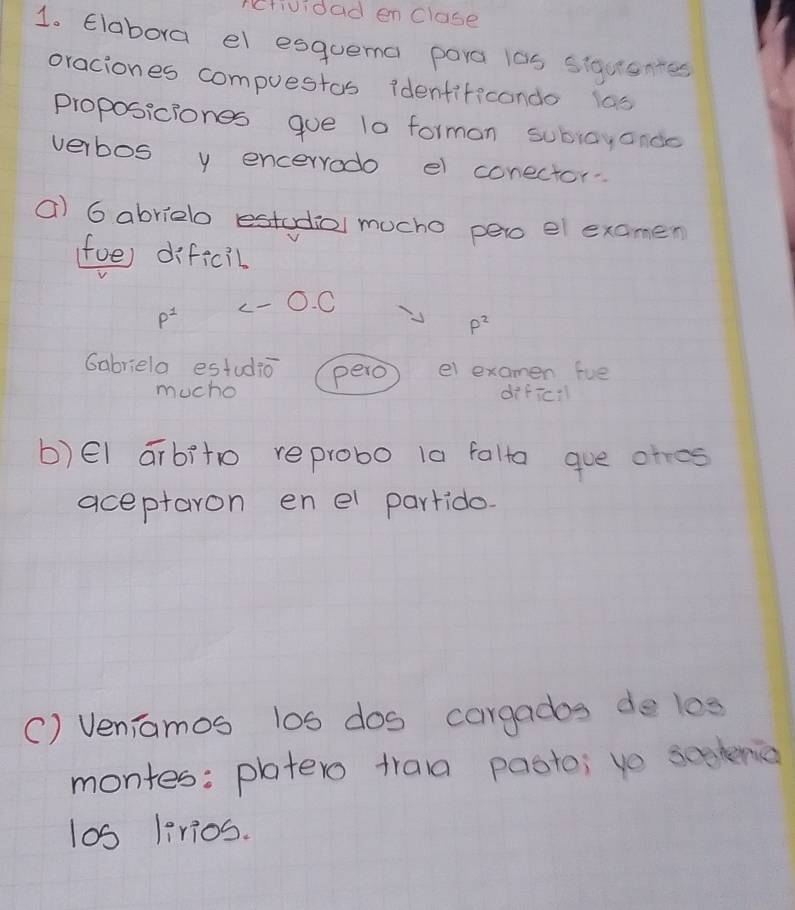 Actividad en clase
1. Elabora el esquema para las siguientes
oraciones compuestas identificando las
proposiciones que la forman subrayando
verbos y encerrado el conector.
a) Gabriela estudió mucho pero el examen
v
fue dificil
v
P¹ <- O.C ↘ P²
Gabriela estudió pero el examen fue
mucho dificil
b) El árbitro reprobo la falta que otros
aceptaron en el partido.
c) Veníamos los dos cargados de los
montes: platero traia pasto; yo sostenía
los lirios.